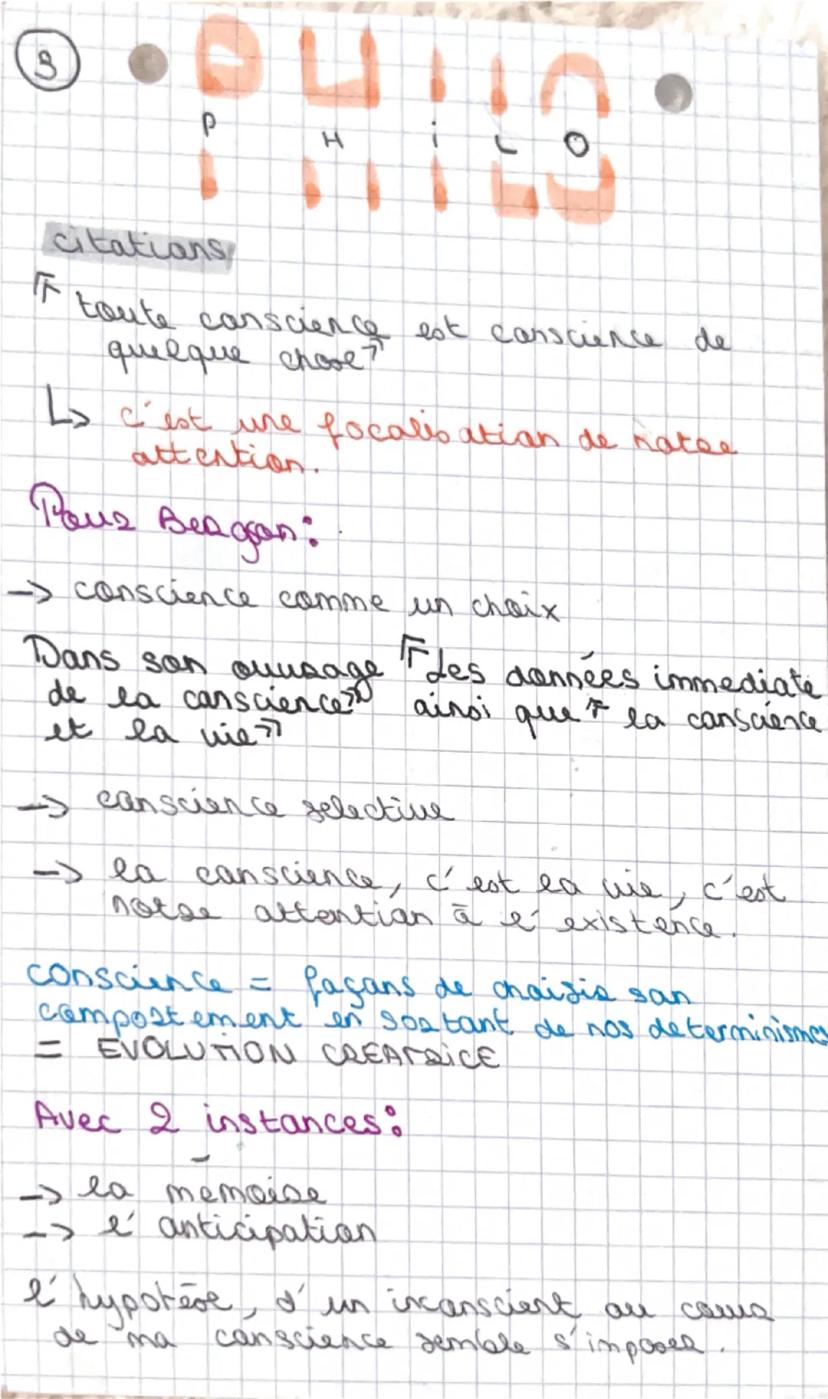 3
PHILO
P H i L O
citations
« toute conscience est conscience de
quelque chose »
↳ c'est une focalisation de notre
attention.
Pour Bergson :
-> conscience comme un choix
Dans son ouvrage « les données immediate
de la conscience » ainsi que « la conscience
et la vie »
-> conscience selective
-> la conscience, c'est la vie, c'est
notre attention à l'existence.
conscience = façons de choisir son
comportement en sortant de nos determinismes
= EVOLUTION CREATRICE
Avec 2 instances :
-> la mémoire
-> l'anticipation
l'hypotèse, d'un inconscient au coeur
de ma conscience semble s'imposer.